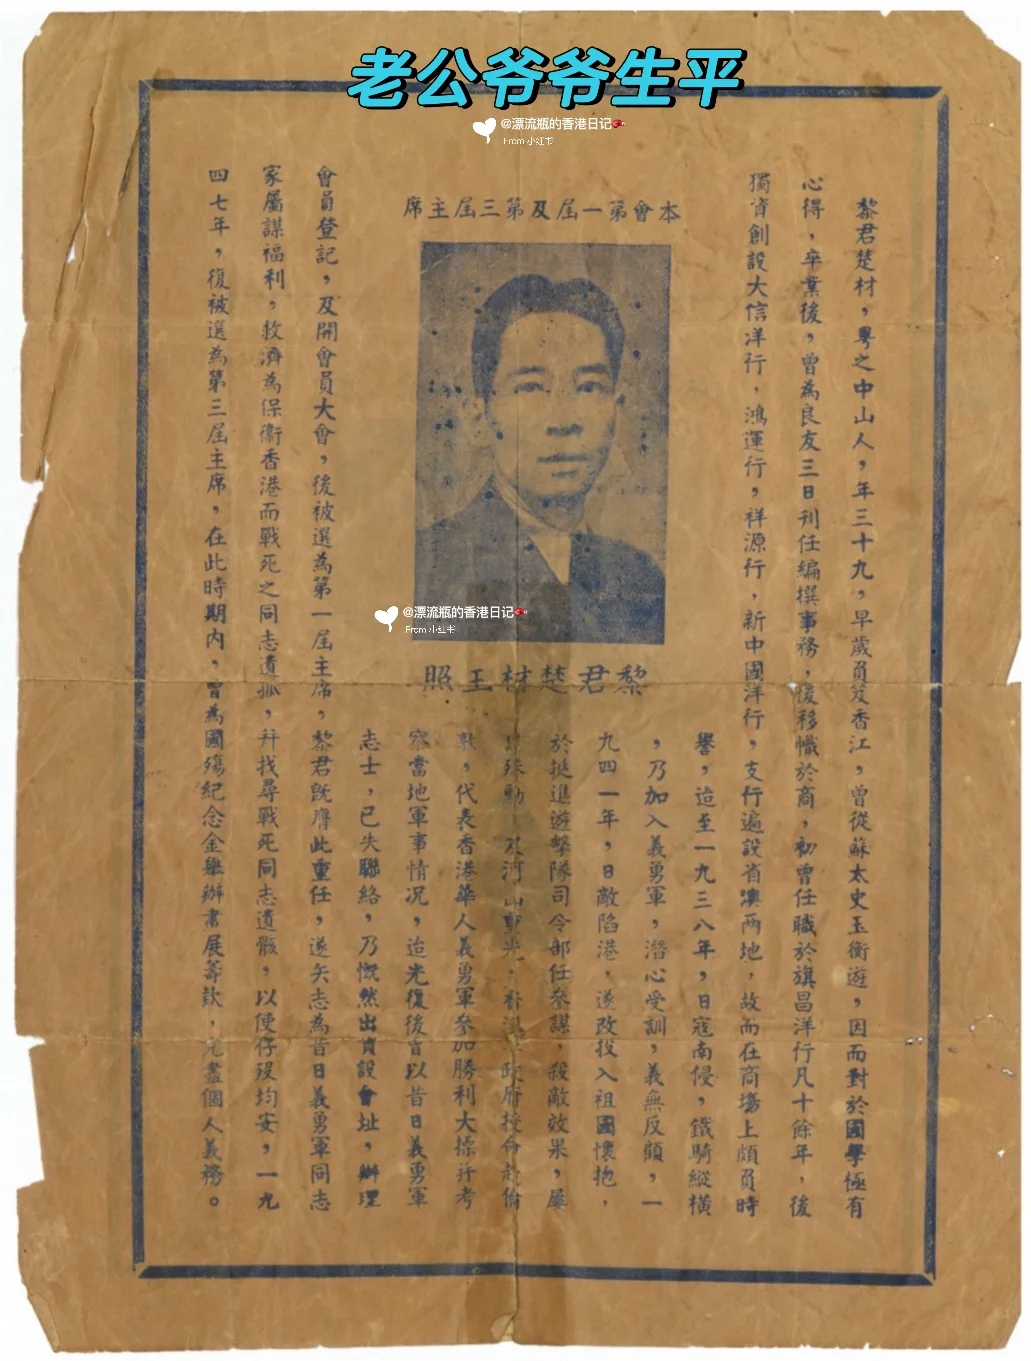 老公爷爷生平
@漂流瓶的香港日记
From 小红书
本會第一屆及第三屆主席
黎君楚材玉照
@漂流瓶的香港日记
From 小红书
黎君楚材，粵之中山人，年三十九，早歲負笈香江，曾從蘇太史玉衡遊，因而對於國學極有
心得，卒業後，曾為良友三日刊任編撰事務，後移幟於商，初曾任職於旗昌洋行凡十餘年，後
獨資創設大信洋行，鴻運行，祥源行，新中國洋行，支行遍設省澳兩地，故而在商場上頗負時
譽，迨至一九三八年，日寇南侵，鐵騎縱橫
，乃加入義勇軍，潛心受訓，義無反顧，一
九四一年，日敵陷港，遂改投入祖國懷抱，
於挺進遊擊隊司令部任參謀，殺敵效果，屢
殊勳，及河山重光，香港政府授命赴倫
敦，代表香港華人義勇軍參加勝利大操并考
察當地軍事情況，迨光復後首以昔日義勇軍
志士，已失聯絡，乃慨然出資設會址，辦理
會員登記，及開會員大會，後被選為第一屆主席，黎君既膺此重任，遂矢志為昔日義勇軍同志
家屬謀福利，救濟為保衞香港而戰死之同志遺孤，幷找尋戰死同志遺骸，以使存歿均安，一九
四七年，復被選為第三屆主席，在此時期內，曾為國殤紀念金舉辦書展籌款，克盡個人義務。